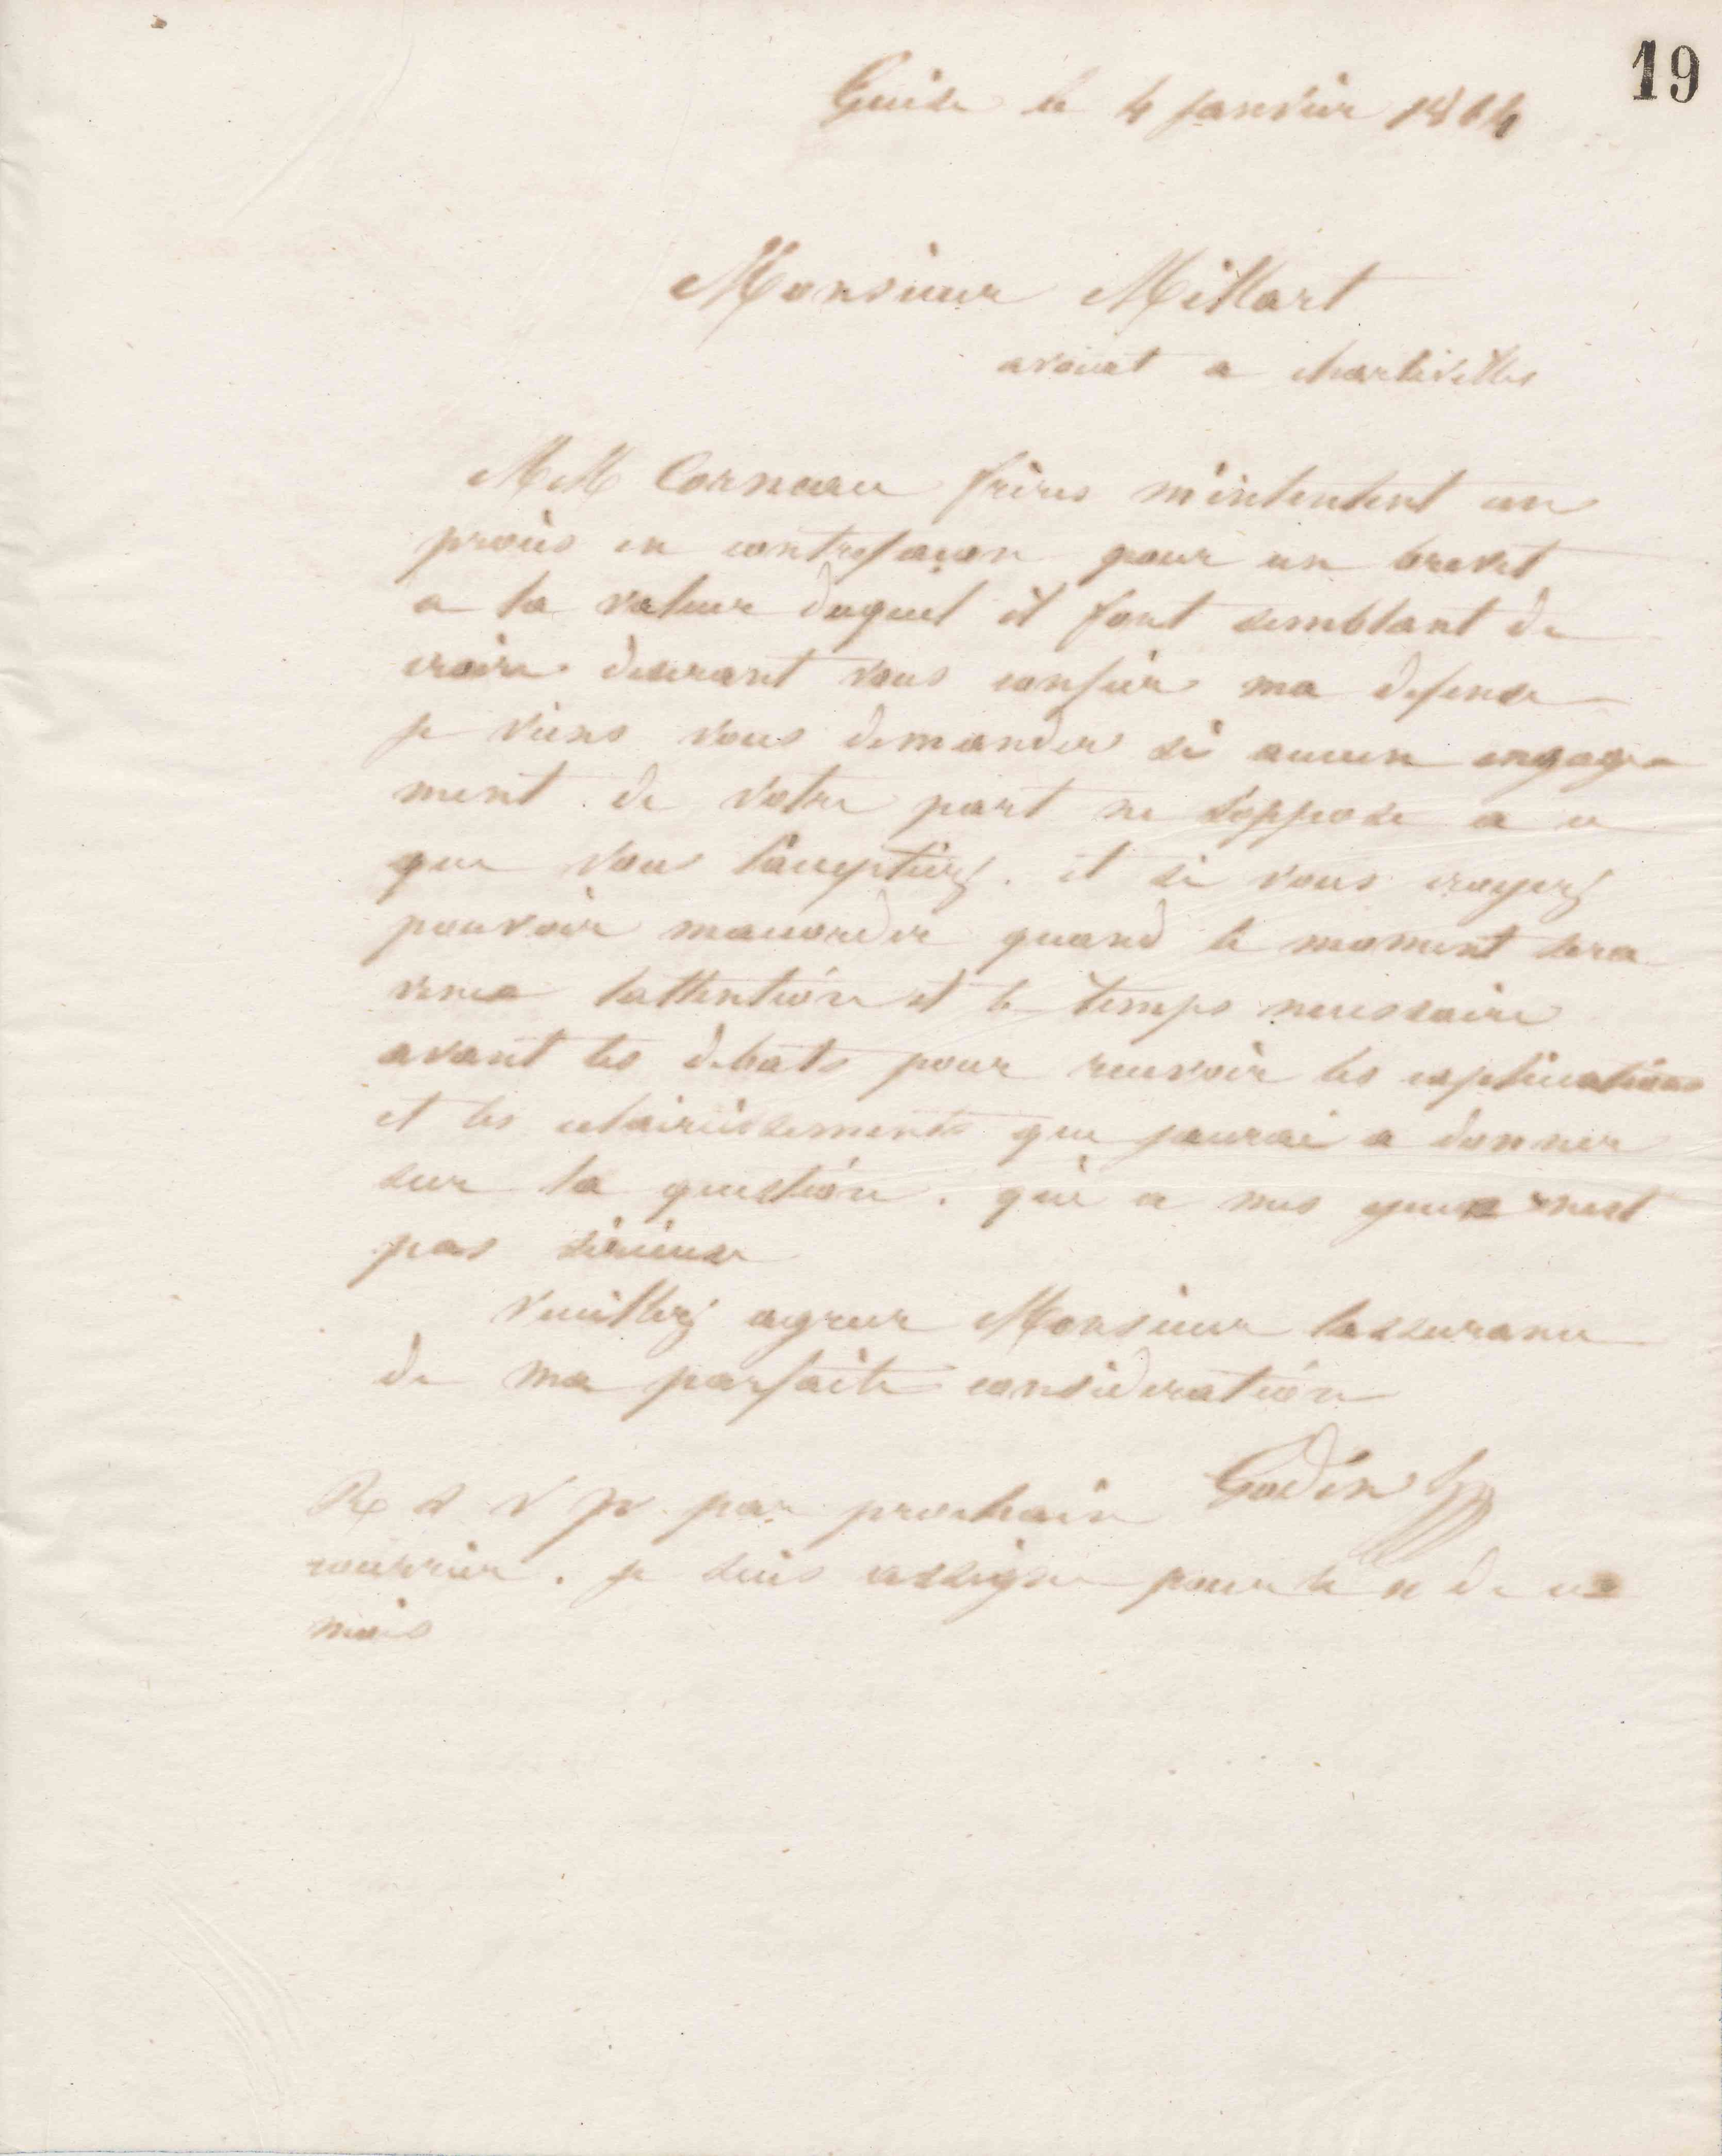 19
Guise le 4 janvier 1864
Monsieur Millart
avocat a charleville
MM Corneau frères m'intentent un
procès en contrefaçon pour un brevet
a la valeur duquel il font semblant de
croire desirant vous confier ma defense
je viens vous demander si aucun engage
ment de votre part ne s'oppose a ce
que vous l'acceptiez. et si vous croyez
pouvoir maccorder quand le moment sera
venu lattention et le temps necessaire
avant les debats pour recevoir les explications
et les eclaircissements que jaurai a donner
sur la question. qui a mes yeux nest
pas sérieuse
Veuillez agreer Monsieur lassurance
de ma parfaite consideration
Godin
R s v p par prochain
courrier. je suis assigne pour le de ce
mois